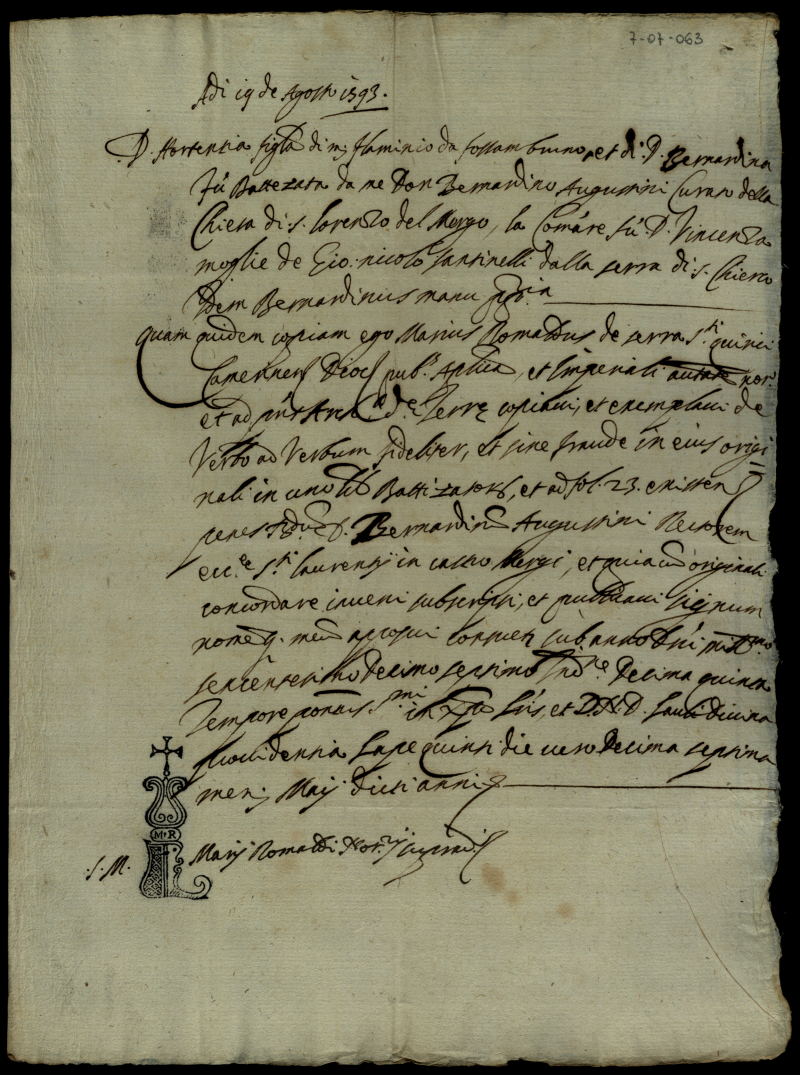 7-07-063
Adi 19 de Agosto 1593.
D. Hortentia figlia di m. flaminio da fossambruno, et di D. Bernardina
fù Battezata da me Don Bernardino Augustini Curato della
Chiesa di s. lorenzo del Mergo, la Comare fù D. Vincenza
moglie de Gio: nicolo santinelli dalla serra di s. Chierco
Idem Bernardinus manu ppria
quam quidem copiam ego Marius Romaldus de serra s.ti quirici
Camerinen Dioc pub.s Aplica, et Imperiali autate not.
et ad pnts de Terre copiavi, et exemplavi de
Verbo ad Verbum fideliter, et sine fraude in eius origi
nali in uno lib Battizatorum, et ad fol. 23. existen
penes D. Bernardinu Augustini Rectorem
ecc.e s.ti laurentij in castro Mergi, et quia cu originali
concordare inveni subscripsi, et publicavi signum
nomeq. meu apposui consuetu sub anno Dni mill.mo
sexcentesimo Decimo septimo Ind.ne Decima quinta
Tempore pontus s.mi in Xpo pris, et D.N.D. Pauli divina
providentia Pape quinti die vero Decima septima
mens Maij dicti anni
M R
s. M. Marij Romaldi Not.rij